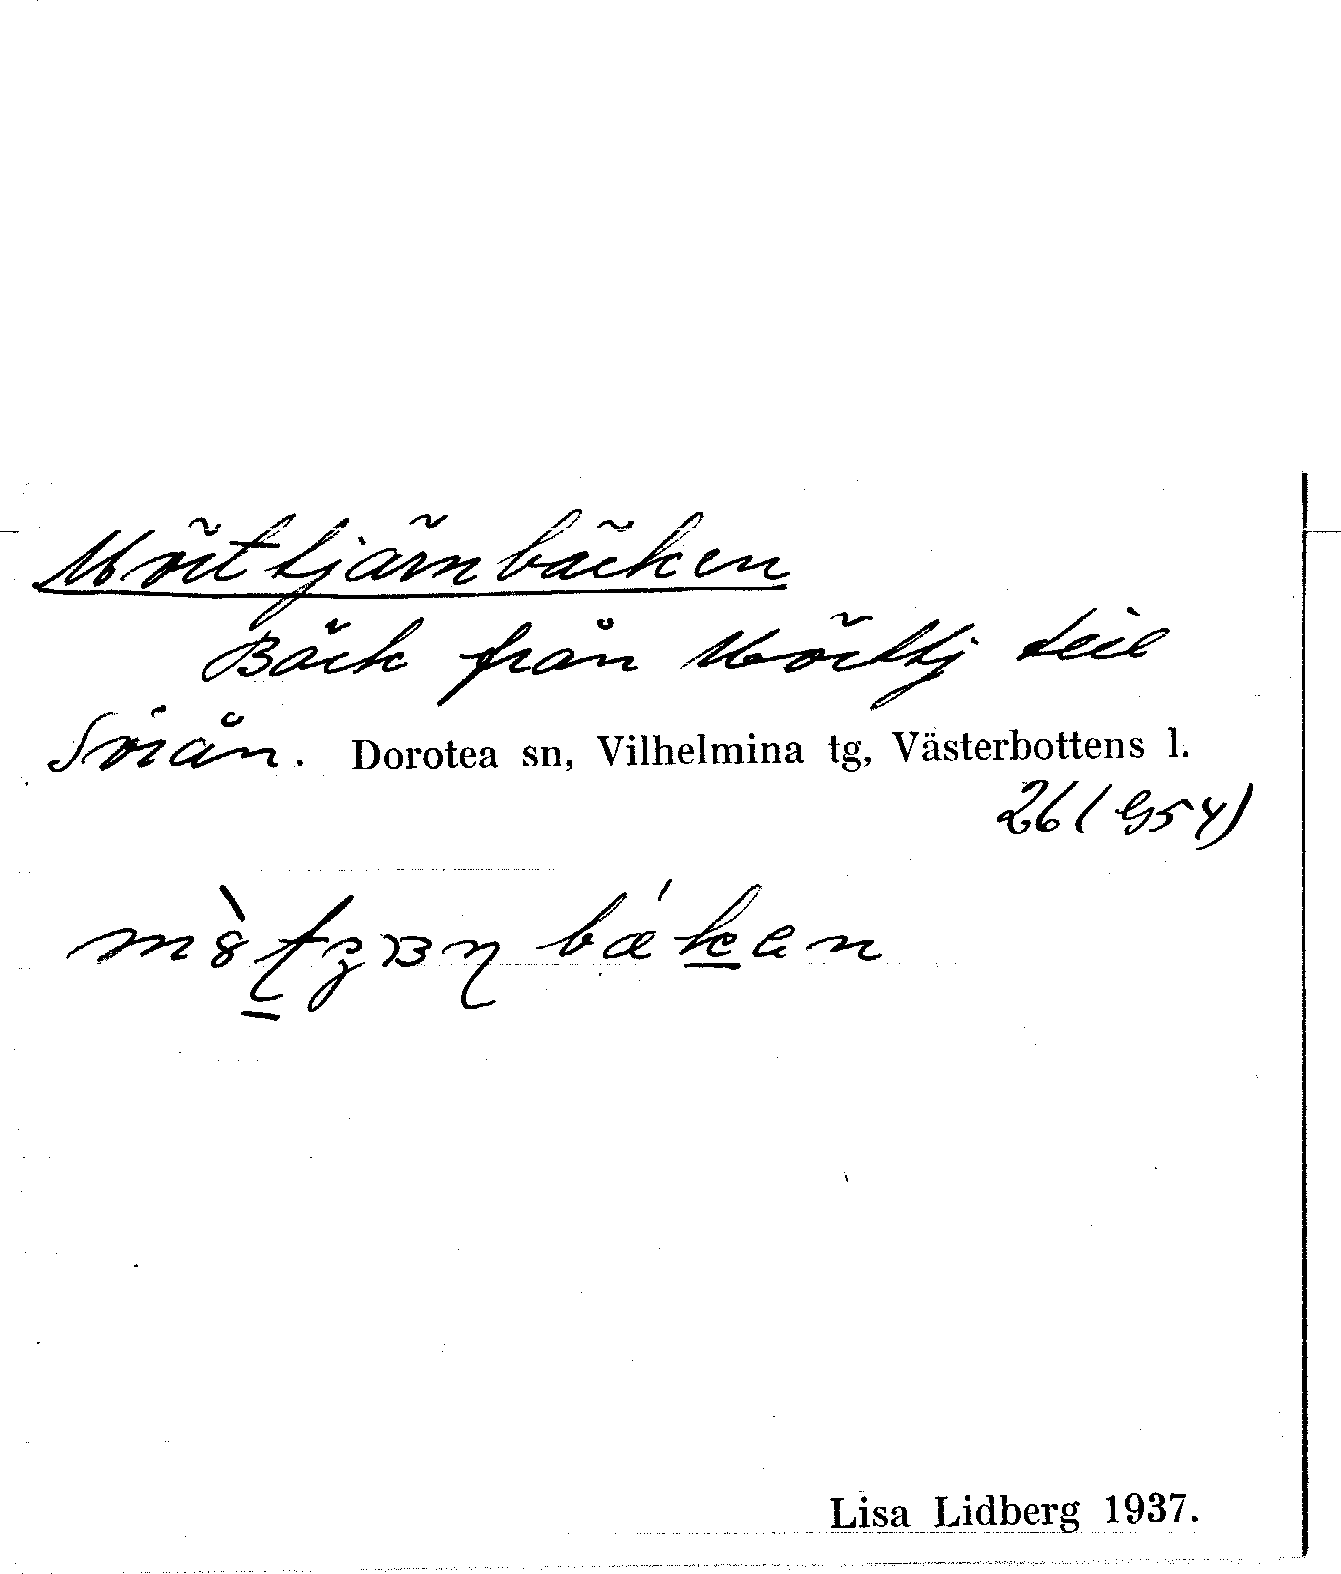 Mörttjärnbäcken
Bäck från Mörttj till
Sviån. Dorotea sn, Vilhelmina tg, Västerbottens l.
26 (G54)
Lisa Lidberg 1937.